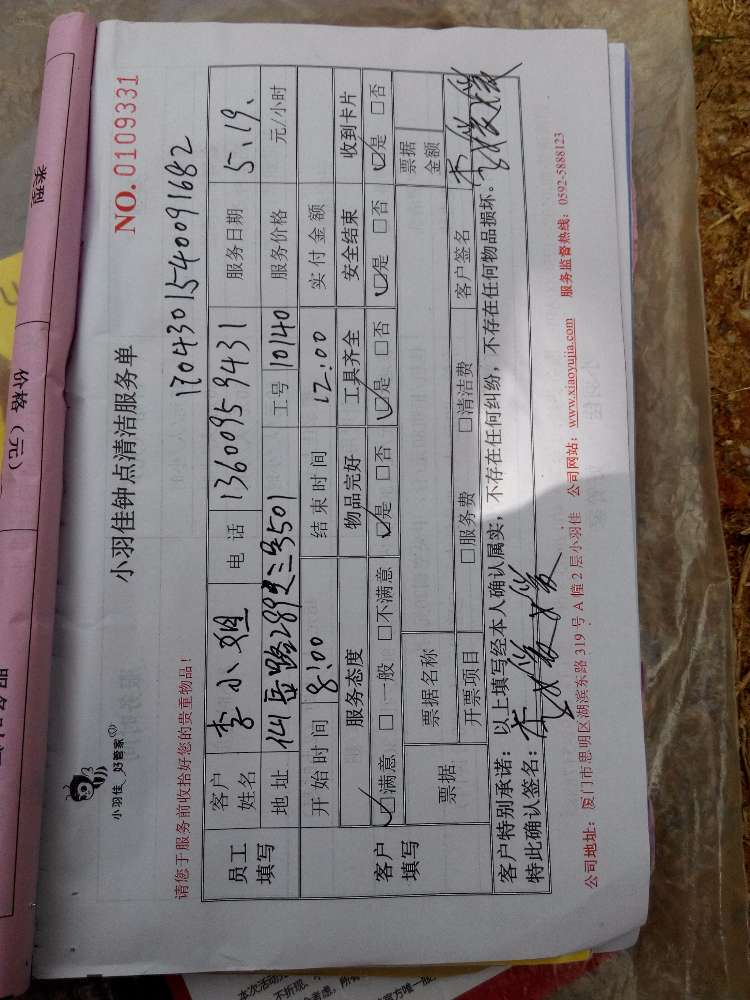 类型
价格（元）
小羽佳 好管家
小羽佳钟点清洁服务单
NO.0109331
1704301540091682
请您于服务前收拾好您的贵重物品！
员工填写
客户姓名 李小姐 电话 13600959431 服务日期 5.19.
地址 仙岳路289之三号501 工号 10140 服务价格 元/小时
开始时间 8:00 结束时间 12:00 实付金额
客户填写
服务态度 物品完好 工具齐全 安全结束 收到卡片
☑满意 □一般 □不满意 ☑是 □否 ☑是 □否 ☑是 □否 ☑是 □否
票据 票据名称 票据金额
开票项目 □服务费 □清洁费 客户签名
客户特别承诺：以上填写经本人确认属实，不存在任何纠纷，不存在任何物品损坏。
特此确认签名：
公司地址：厦门市思明区湖滨东路319号A幢2层小羽佳 公司网站：www.xiaoyujia.com 服务监督热线：0592-5888123
本次活动
不折现、